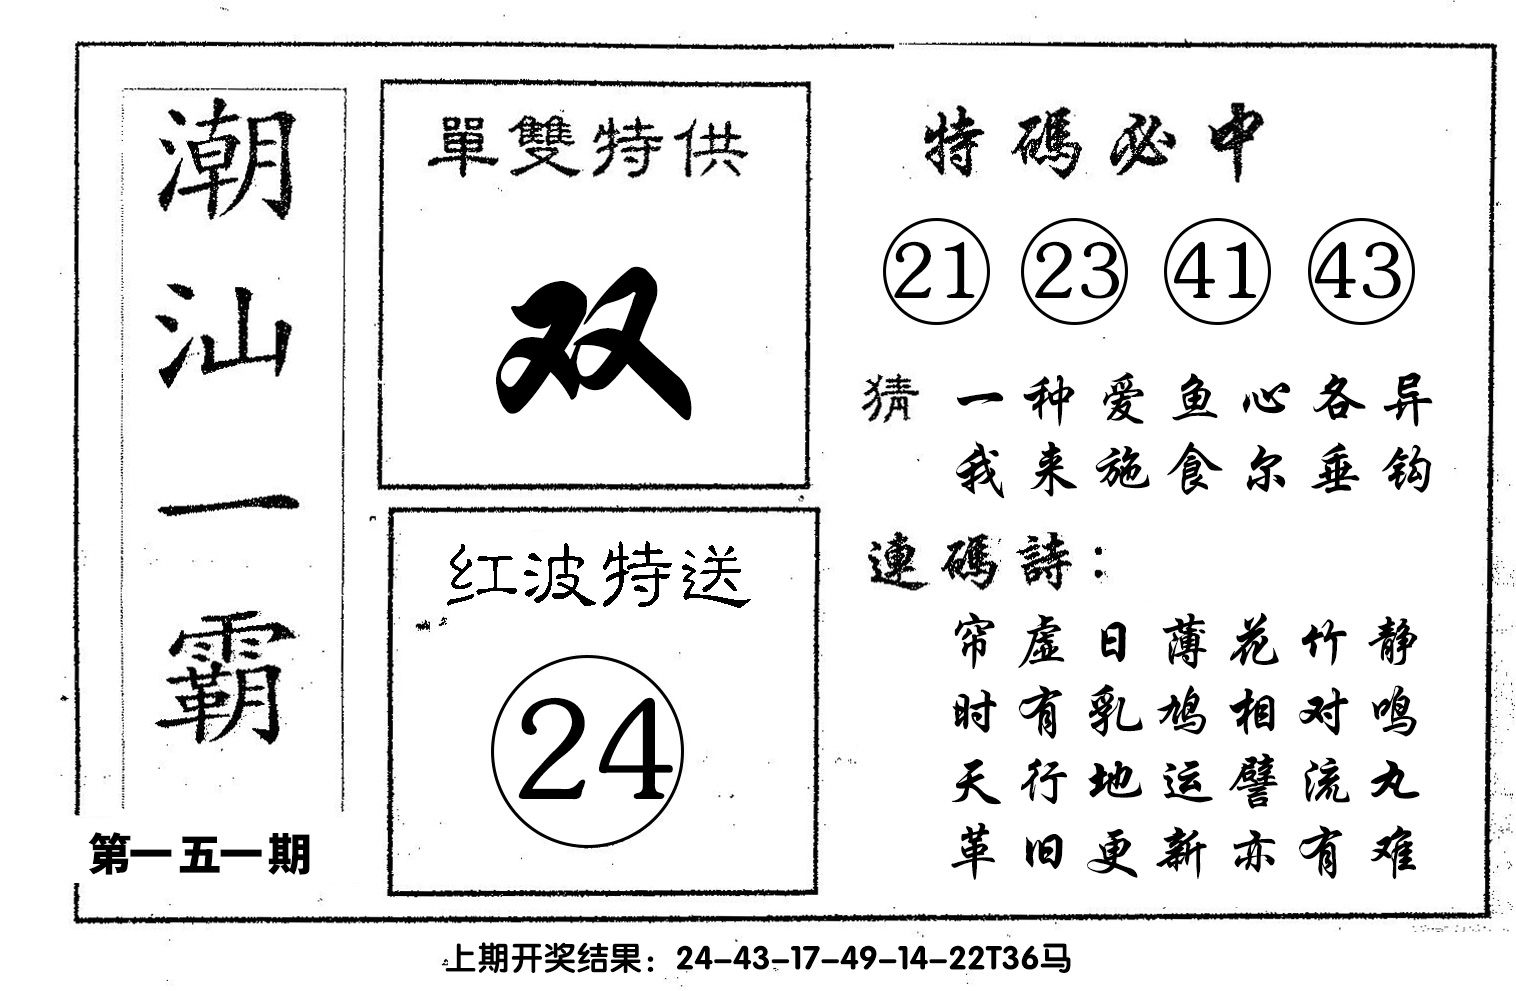 潮汕一霸
第一五一期
單雙特供
双
红波特送
24
特碼必中
21 23 41 43
猜 一种爱鱼心各异
我来施食尔垂钩
連碼詩：
帘虚日薄花竹静
时有乳鸠相对鸣
天行地运譬流丸
革旧更新亦有难
上期开奖结果：24-43-17-49-14-22T36马